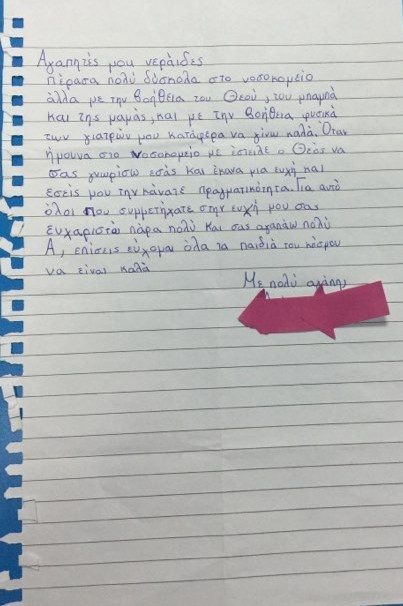 Αγαπητές μου νεράιδες
Πέρασα πολύ δύσκολα στο νοσοκομείο
άλλα με την βοήθεια του Θεού, του μπαμπά
και της μαμάς, και με την βοήθεια φυσικά
των γιατρών μου κατάφερα να γίνω καλά. Όταν
ήμουνα στο νοσοκομείο με έστειλε ο Θεός να
σας γνωρίσω εσάς και έκανα μια ευχή και
εσείς μου την κάνατε πραγματικότητα. Για αυτό
όλοι που συμμετήχατε στην ευχή μου σας
ευχαριστώ πάρα πολύ και σας αγαπάω πολύ
Α, επίσεις εύχομαι όλα τα παιδιά του κόσμου
να είναι καλά
Με πολύ αγάπη